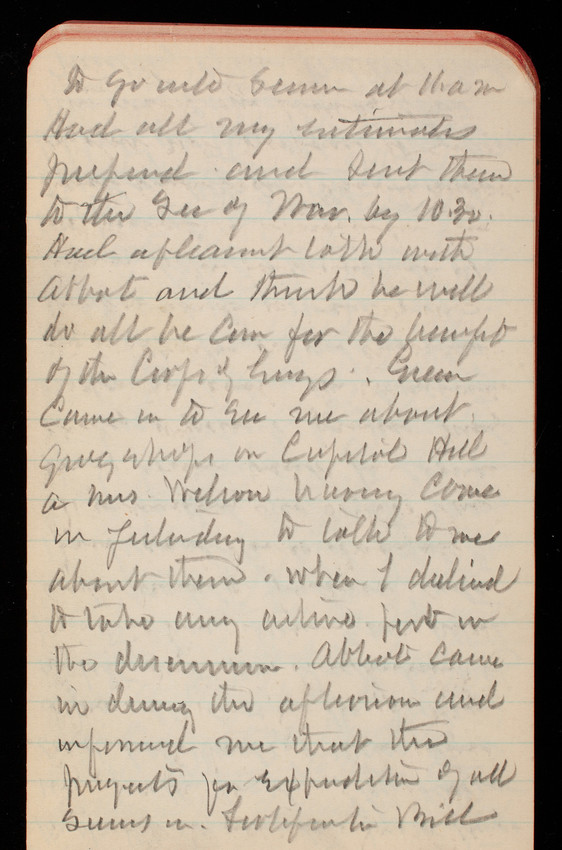 to go into Senn at 11 a m
Had all my estimates
prepared and sent them
to the Sec of War. by 10.30.
Had a pleasant talk with
Abbot and think he will
do all he can for the benefit
of the Corps of Engrs. Green
came in to see me about
grog shops on Capitol Hill
a Mrs. Wilson having come
in yesterday to talk to me
about them. when I declined
to take any active part in
the discussion. Abbot came
in during the afternoon and
informed me that the
projects for expenditure of all
sums in Fortification Bill